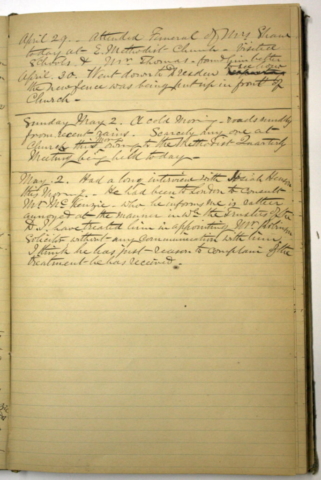 April 29. - Attended Funeral of Mrs Shaw
today at E. Methodist Church - Visited
Schools & Mr Thomas - found
April 30. Went down to Dresden
the new fence was being put up in front of
Church -
Sunday May 2. A cold Morning - roads muddy
from recent rains. Scarcely any one at
Church owing to the Methodist Quarterly
Meeting being held to day -
May 2. Had a long interview with Isaiah Henson
this Morning - He had been to London to consult
Mr McKenzie - who he informs me is rather
annoyed at the manner in wh the Trustees of the
have treated him in appointing Mr
Solicitor without any Communication with him,
I think he has just reason to complain of the
treatment he has received -